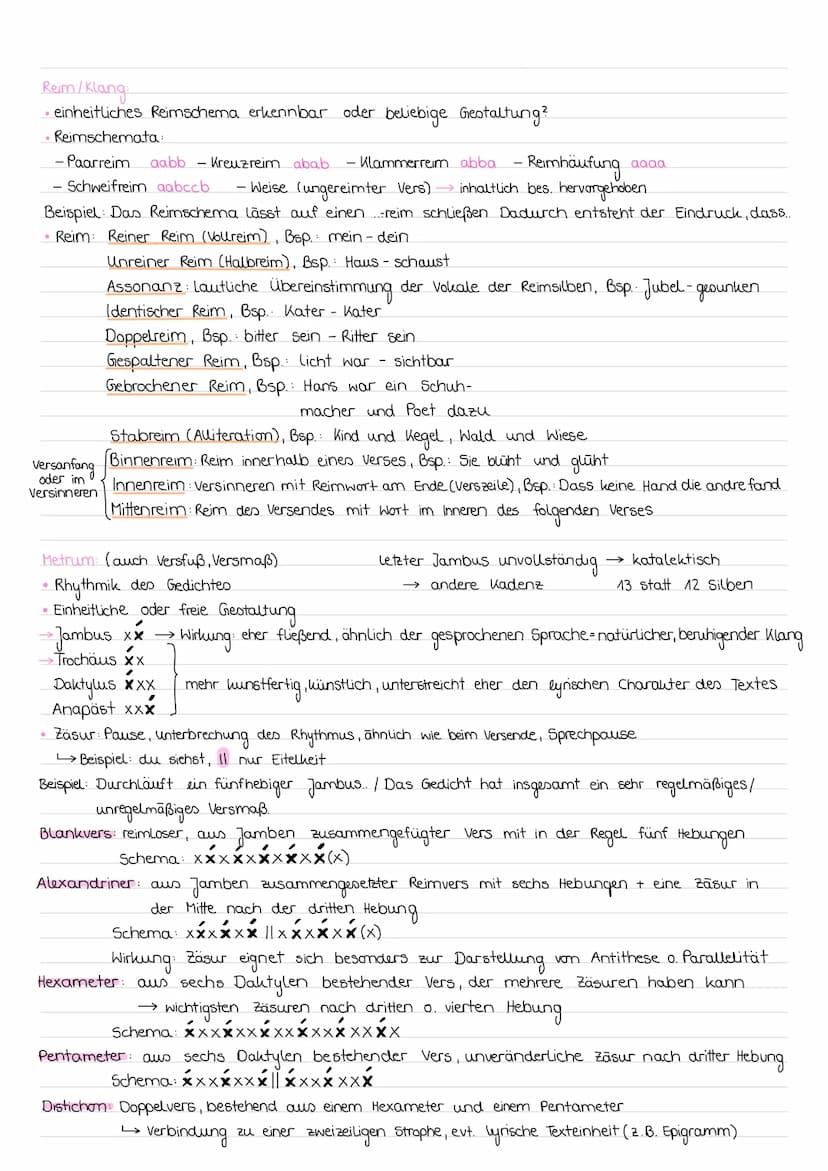 Reim/Klang:
• einheitliches Reimschema erkennbar oder beliebige Gestaltung?
• Reimschemata:
– Paarreim aabb – Kreuzreim abab – Klammerreim abba – Reimhäufung aaaa
– Schweifreim aabccb – Weise (ungereimter Vers) → inhaltlich bes. hervorgehoben
Beispiel: Das Reimschema lässt auf einen ...-reim schließen Dadurch entsteht der Eindruck, dass..
• Reim: Reiner Reim (Vollreim), Bsp.: mein – dein
Unreiner Reim (Halbreim), Bsp.: Haus – schaust
Assonanz: lautliche Übereinstimmung der Vokale der Reimsilben, Bsp.: Jubel – gesunken
Identischer Reim, Bsp.: Kater – Kater
Doppelreim, Bsp.: bitter sein – Ritter sein
Gespaltener Reim, Bsp.: licht war – sichtbar
Gebrochener Reim, Bsp.: Hans war ein Schuh-
macher und Poet dazu
Stabreim (Alliteration), Bsp.: Kind und Kegel, Wald und Wiese
Versanfang oder im Versinneren
Binnenreim: Reim innerhalb eines Verses, Bsp.: Sie blüht und glüht
Innenreim: Versinneren mit Reimwort am Ende (Verszeile), Bsp.: Dass keine Hand die andre fand
Mittenreim: Reim des Versendes mit Wort im Inneren des folgenden Verses
Metrum: (auch Versfuß, Versmaß) Letzter Jambus unvollständig → katalektisch
• Rhythmik des Gedichtes → andere Kadenz 13 statt 12 Silben
• Einheitliche oder freie Gestaltung
→ Jambus xx́ → Wirkung: eher fließend, ähnlich der gesprochenen Sprache = natürlicher, beruhigender Klang
→ Trochäus x́x
Daktylus x́xx mehr kunstfertig, künstlich, unterstreicht eher den lyrischen Charakter des Textes
Anapäst xxx́
• Zäsur: Pause, Unterbrechung des Rhythmus, ähnlich wie beim Versende, Sprechpause
↳ Beispiel: du siehst, || nur Eitelkeit
Beispiel: Durchläuft ein fünfhebiger Jambus.. / Das Gedicht hat insgesamt ein sehr regelmäßiges/
unregelmäßiges Versmaß.
Blankvers: reimloser, aus Jamben zusammengefügter Vers mit in der Regel fünf Hebungen
Schema: xx́xx́xx́xx́xx́(x)
Alexandriner: aus Jamben zusammengesetzter Reimvers mit sechs Hebungen + eine Zäsur in
der Mitte nach der dritten Hebung
Schema: xx́xx́xx́ || xx́xx́xx́ (x)
Wirkung: Zäsur eignet sich besonders zur Darstellung von Antithese o. Parallelität
Hexameter: aus sechs Daktylen bestehender Vers, der mehrere Zäsuren haben kann
→ wichtigsten Zäsuren nach dritten o. vierten Hebung
Schema: x́xxx́xxx́xxx́xxx́xxx́x
Pentameter: aus sechs Daktylen bestehender Vers, unveränderliche Zäsur nach dritter Hebung
Schema: x́xxx́xxx́ || x́xxx́xxx́
Distichon: Doppelvers, bestehend aus einem Hexameter und einem Pentameter
↳ Verbindung zu einer zweizeiligen Strophe, evt. lyrische Texteinheit (z.B. Epigramm)